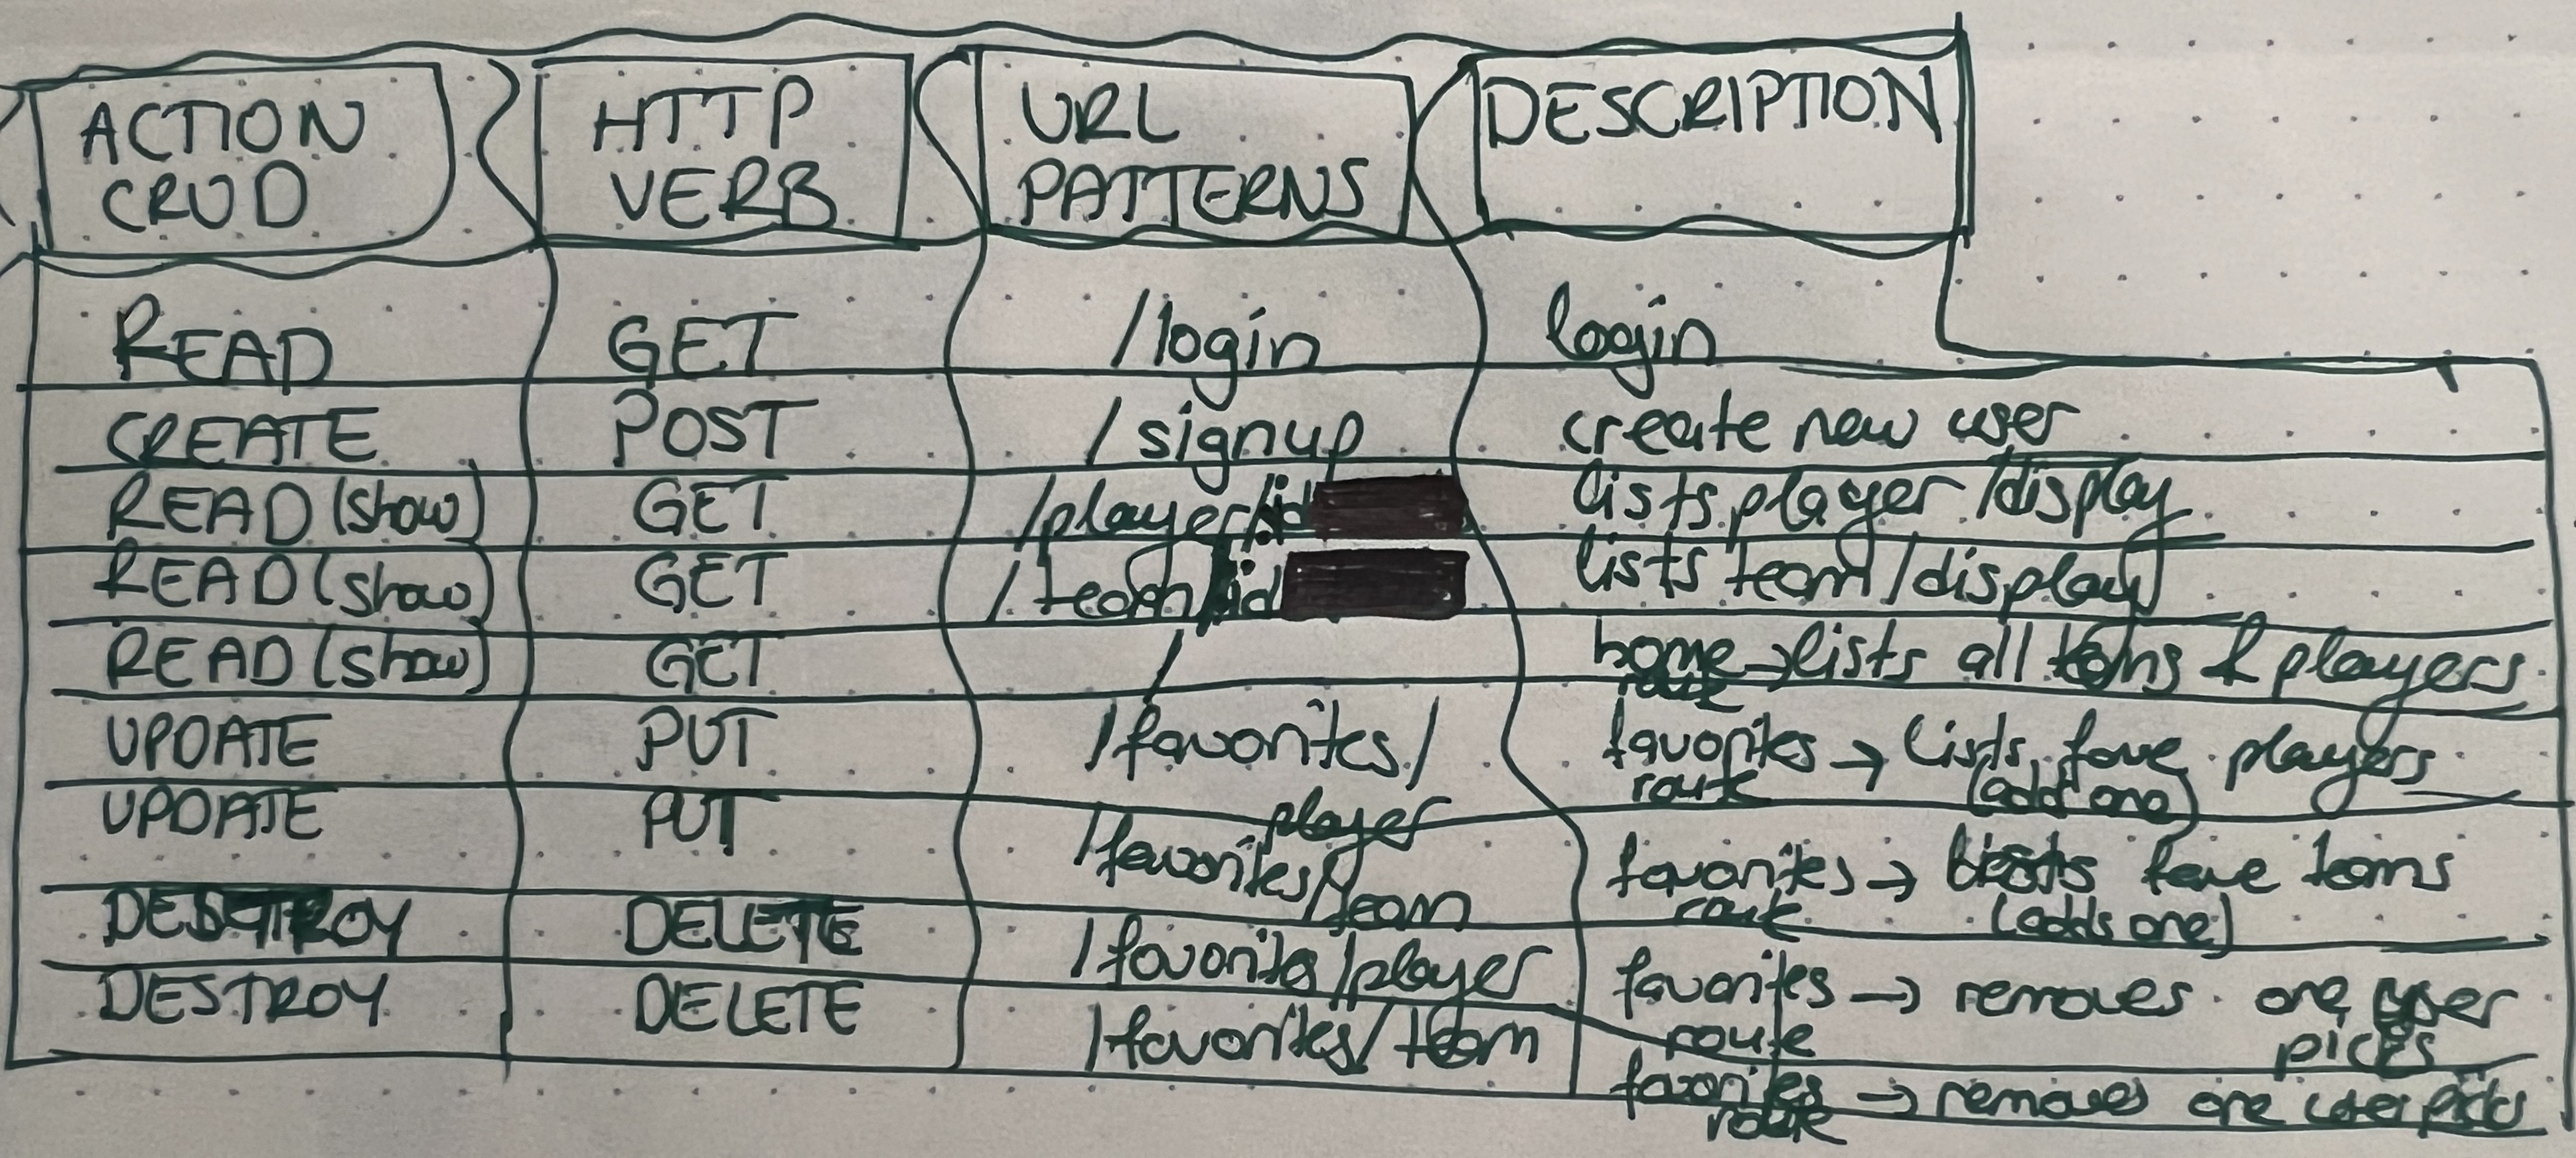 ACTION CRUD HTTP VERB URL PATTERNS DESCRIPTION
READ GET /login login
CREATE POST /signup create new user
READ (show) GET /player/:id lists player/display
READ (show) GET /team/:id lists team/display
READ (show) GET / home route → lists all teams & players
UPDATE PUT /favorites/player favorites route → lists fave players (add one)
UPDATE PUT /favorites/team favorites route → lists fave teams (adds one)
DESTROY DELETE /favorites/player favorites route → removes one user picks
DESTROY DELETE /favorites/team favorites route → removes one user picks